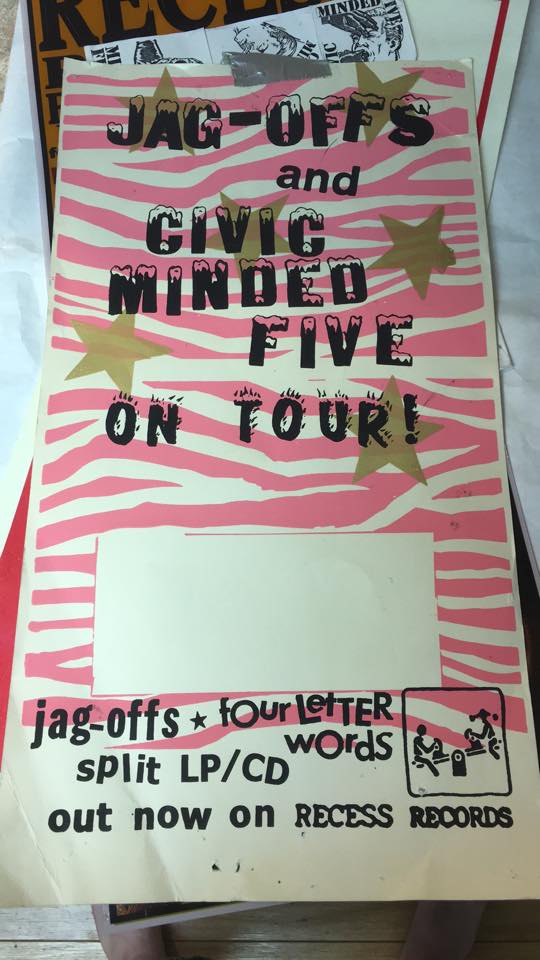 RECESS
MINDED
JAG-OFFS
and
CIVIC
MINDED
FIVE
ON TOUR!
jag-offs ★ four LetTER
words
split LP/CD
out now on RECESS RECORDS